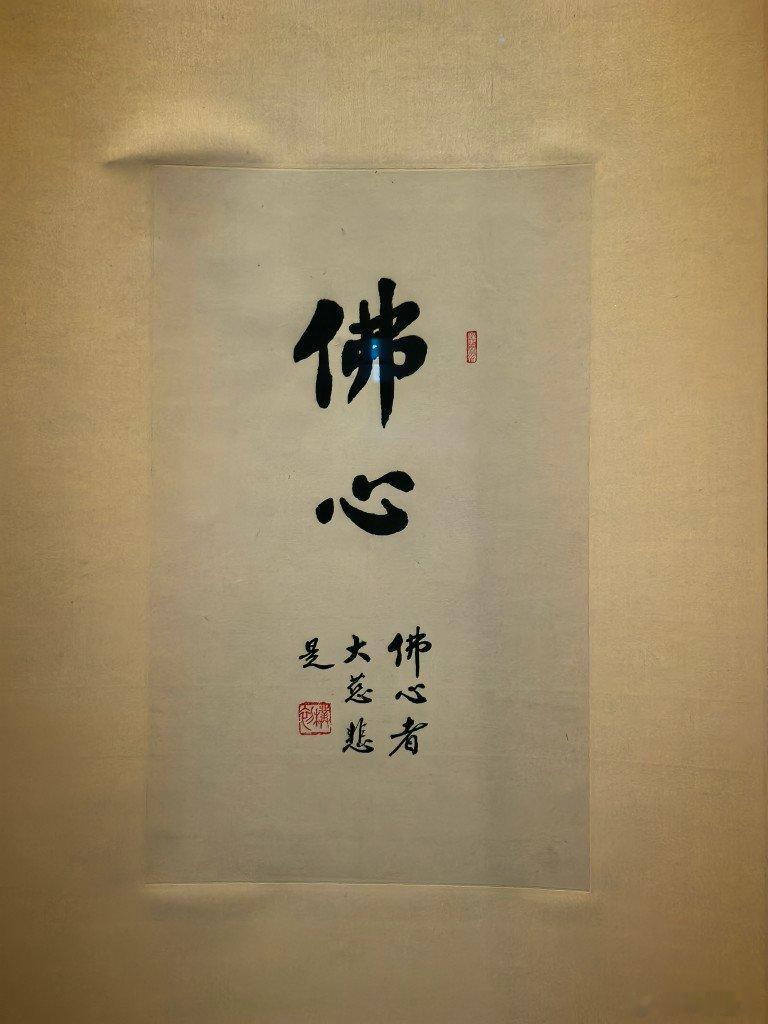 佛心
佛心者
大慈悲
是
樸初